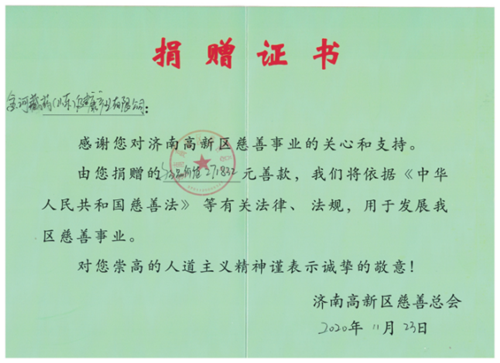 捐赠证书
金诃藏药(山东)健康产业有限公司:
感谢您对济南高新区慈善事业的关心和支持。
由您捐赠的 271832 元善款,我们将依据《中华
人民共和国慈善法》等有关法律、法规,用于发展我
区慈善事业。
对您崇高的人道主义精神谨表示诚挚的敬意!
济南高新区慈善总会
2020年 11月 23日